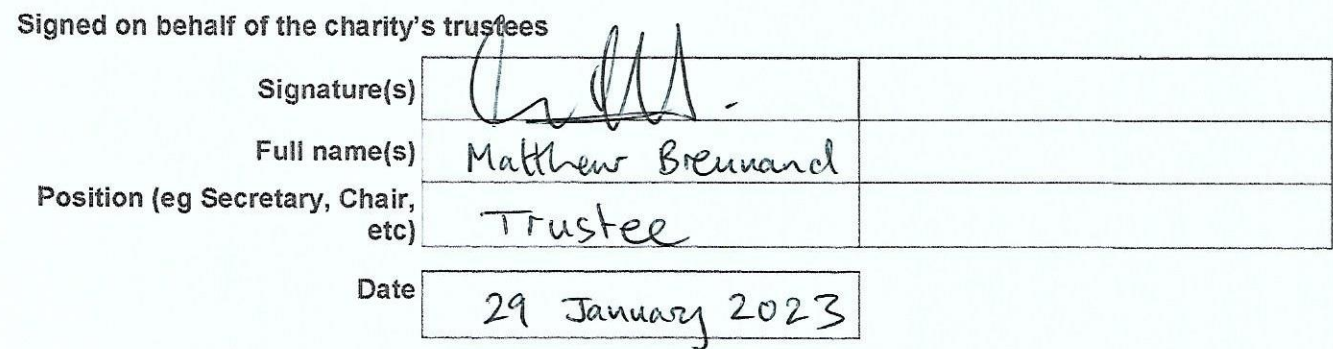 Signed on behalf of the charity's trustees
Signature(s)
Full name(s) Matthew Brennand
Position (eg Secretary, Chair,
etc) Trustee
Date 29 January 2023